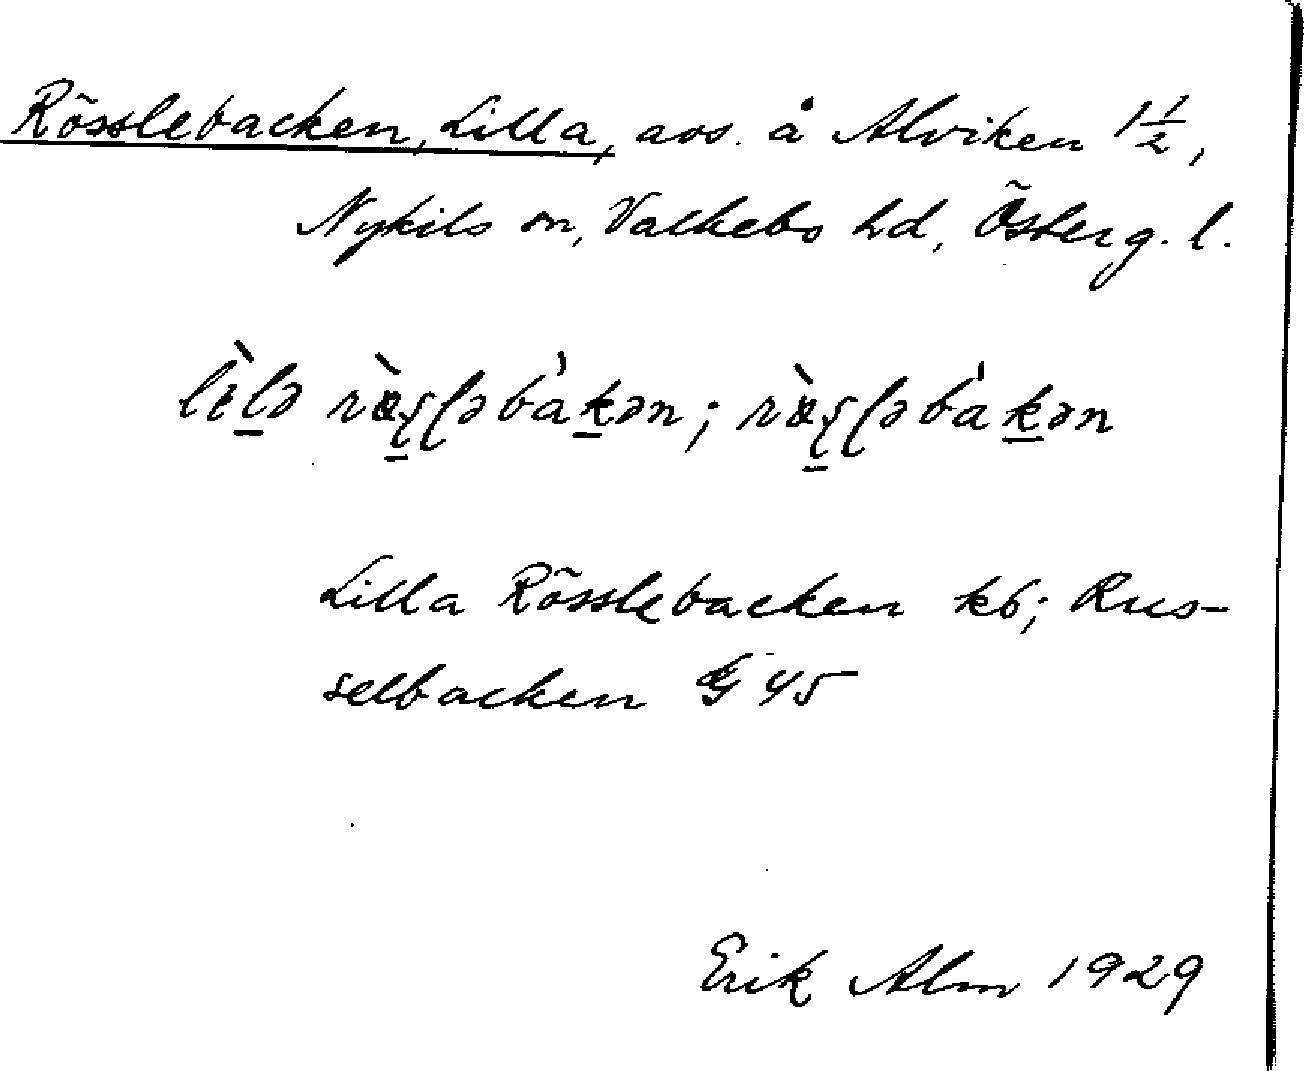 Rösslebacken, Lilla, avs. å Alviken 1 1/2,
Nykils sn, Valkebo hd, Österg. l.
lìlə rö̀şļəbàkən; rö̀şļəbàkən
Lilla Rösslebacken kb; Rus-
selbacken G 45
Erik Alm 1929